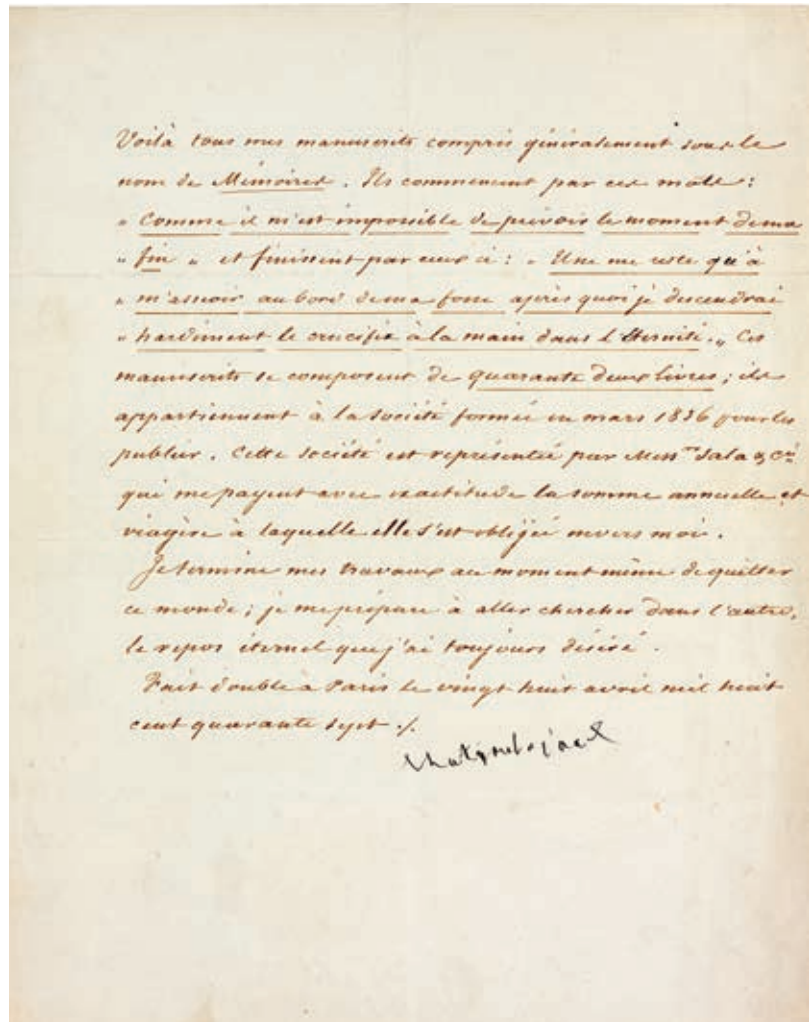 Voilà tous mes manuscrits compris généralement sous le
nom de Mémoires. Ils commencent par ces mots :
" Comme il m'est impossible de prévoir le moment de ma
" fin " et finissent par ceux ci : " Il ne me reste qu'à
" m'asseoir au bord de ma fosse après quoi je descendrai
" hardiment le crucifix à la main dans l'Eternité. " Ces
manuscrits se composent de quarante deux livres ; ils
appartiennent à la société formée en mars 1836 pour les
publier. Cette société est représentée par Mess.rs Sala & Cie
qui me payent avec exactitude la somme annuelle et
viagère à laquelle elle s'est obligée envers moi.
Je termine mes travaux au moment même de quitter
ce monde ; je me prépare à aller chercher dans l'autre,
le repos éternel que j'ai toujours désiré.
Fait double à Paris le vingt huit avril mil huit
cent quarante sept ./.
Chateaubriand